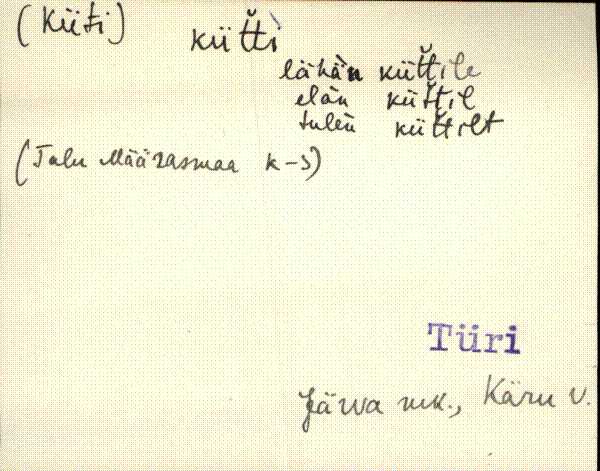 (Küti) küt̆ti
lähän küt̆tile
elàn küt̆til
tulen küt̆tilt
(Talu Määrasmaa k-s)
Türi
Järva mk., Käru v.